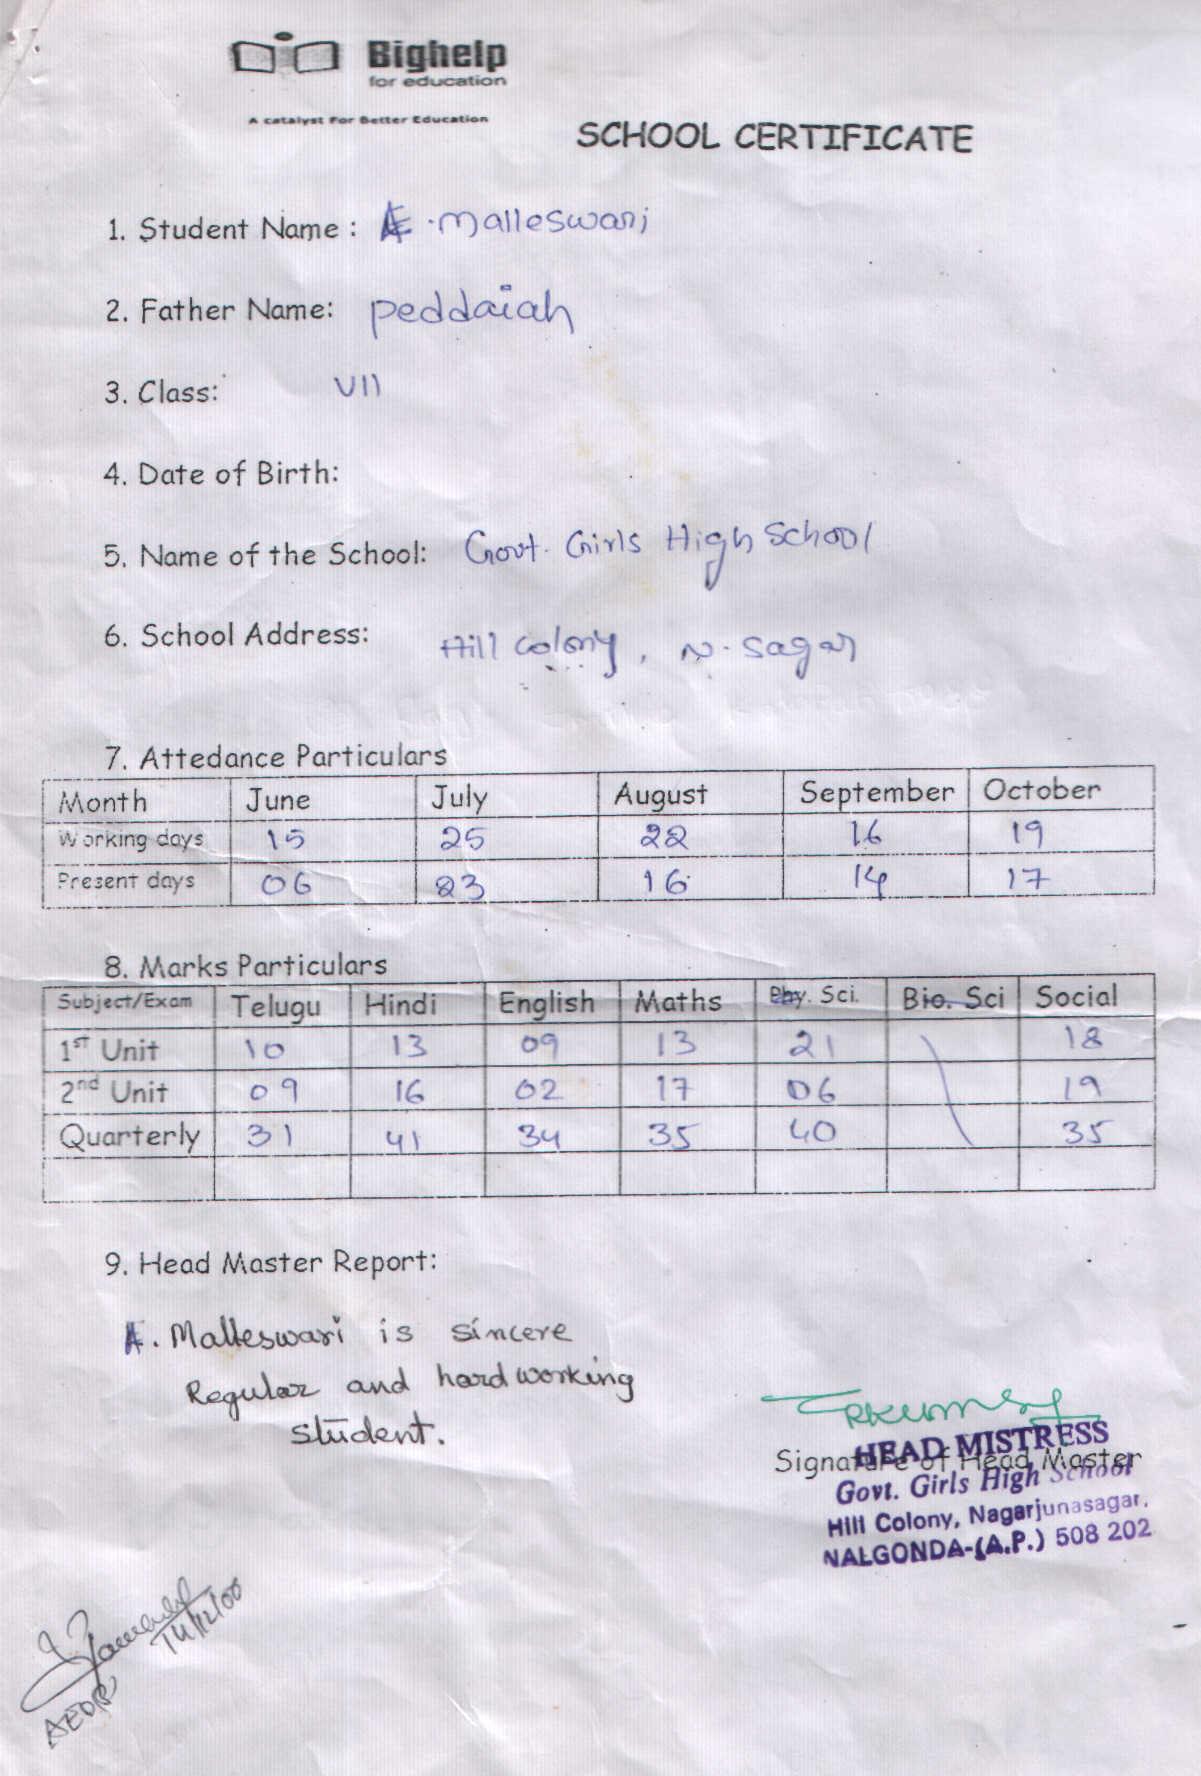 Bighelp
for education
A catalyst For Better Education
SCHOOL CERTIFICATE
1. Student Name : A. Malleswari
2. Father Name: Peddaiah
3. Class: VII
4. Date of Birth:
5. Name of the School: Govt. Girls High School
6. School Address: Hill Colony, N. Sagar
7. Attedance Particulars
Month June July August September October
Working days 15 25 22 16 19
Present days 06 23 16 14 17
8. Marks Particulars
Subject/Exam Telugu Hindi English Maths Phy. Sci. Bio. Sci Social
1st Unit 10 13 09 13 21 18
2nd Unit 09 16 02 17 06 19
Quarterly 31 41 34 35 40 35
9. Head Master Report:
A. Malleswari is sincere
Regular and hard working
student.
Signature of Head Master
HEAD MISTRESS
Govt. Girls High School
Hill Colony, Nagarjunasagar,
NALGONDA-(A.P.) 508 202